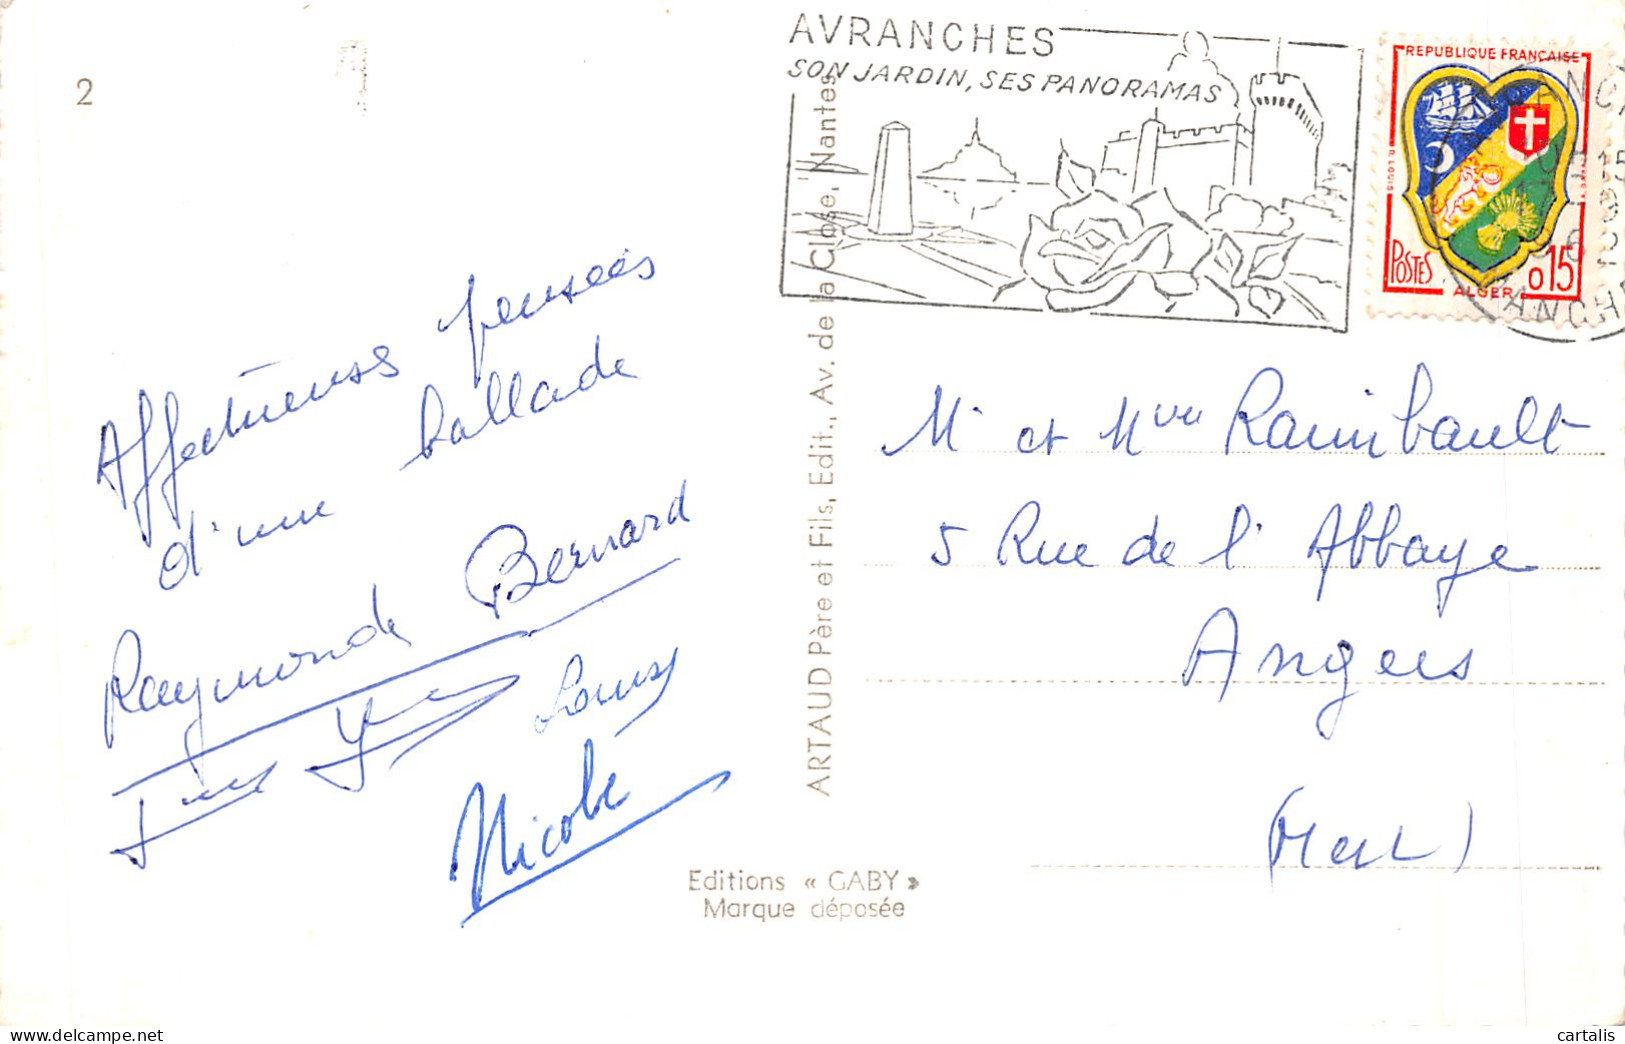 2
AVRANCHES
SON JARDIN, SES PANORAMAS
REPUBLIQUE FRANÇAISE
R. LOUIS
POSTES
ALGER
0,15
Affectueuses pensées
d'une ballade
Raymonde Bernard
Louis
Nicole
ARTAUD Père et Fils, Edit., Av. de la Close, Nantes
Mr et Mme Raimbault
5 Rue de l'Abbaye
Angers
(M et L)
Editions « GABY »
Marque déposée
cartalis